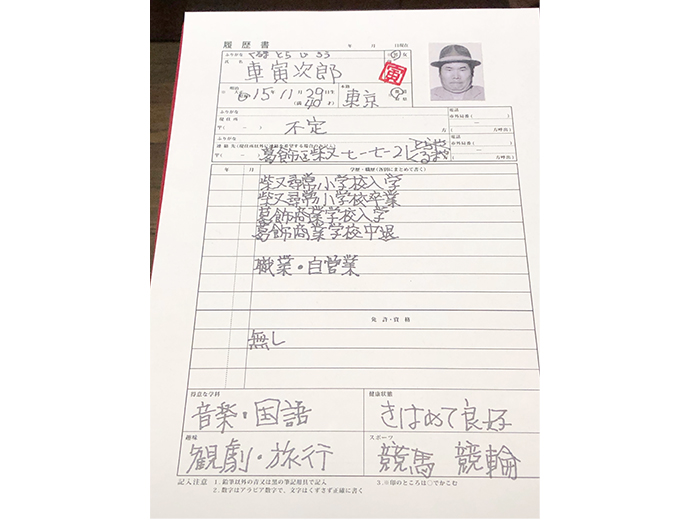 履歴書 年 月 日現在
ふりがな くるま とら じろう 男 女
氏名 車寅次郎 寅
明治 15年11月29日生(満40才) 本籍 東京
ふりがな 電話
現住所 不定 市外局番( ) 方( 方呼出)
ふりがな 電話
連絡先 葛飾区柴又七-七-2 とらや くるまや 市外局番( ) 方( 方呼出)
年 月 学歴・職歴(各別にまとめて書く)
柴又尋常小学校入学
柴又尋常小学校卒業
葛飾商業学校入学
葛飾商業学校中退
職業・自営業
免許・資格
無し
得意な学科 健康状態
音楽・国語 きはめて良好
趣味 スポーツ
観劇・旅行 競馬 競輪
記入注意 1.鉛筆以外の青又は黒の筆記用具で記入 3.※印のところは○でかこむ
2.数字はアラビア数字で、文字はくずさず正確に書く